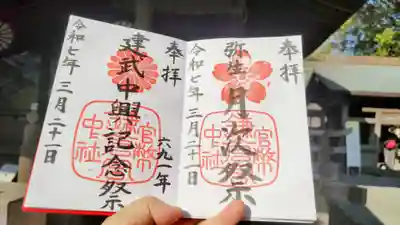 奉拝
弥生
月次祭
令和七年三月二十一日
奉拝
建武中興記念祭
六九一年
令和七年三月二十一日
官幣
中社
官幣
中社